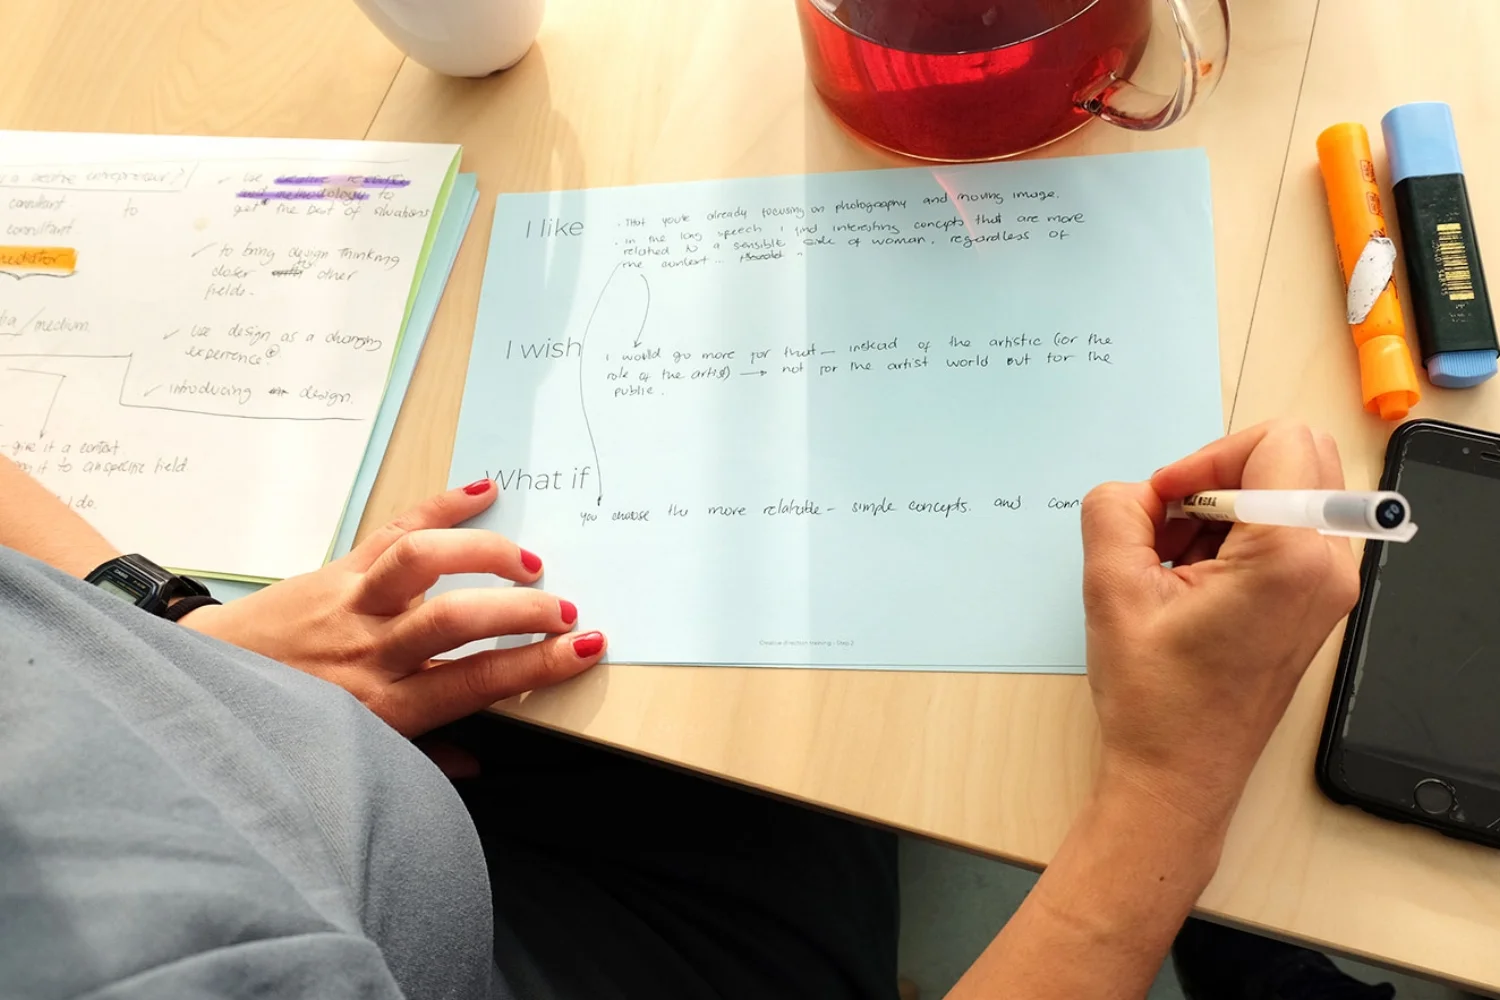 creative entrepreneur?
consultant to
consultant
mediator
/medium
- give it a context
it to an specific field
do.
✓ use creative
and methodology to
get the best of situations
✓ to bring design thinking
closer other
fields.
✓ use design as a changing
experience
✓ introducing design.
I like
· That you're already focusing on photography and moving image.
· in the long speech I find interesting concepts that are more
related to a sensible side of woman, regardless of
the context ..
I wish
I would go more for that — instead of the artistic (or the
role of the artist) → not for the artist world but for the
public.
What if
you choose the more relatable - simple concepts. and conn
Creative direction training - Step 2
05